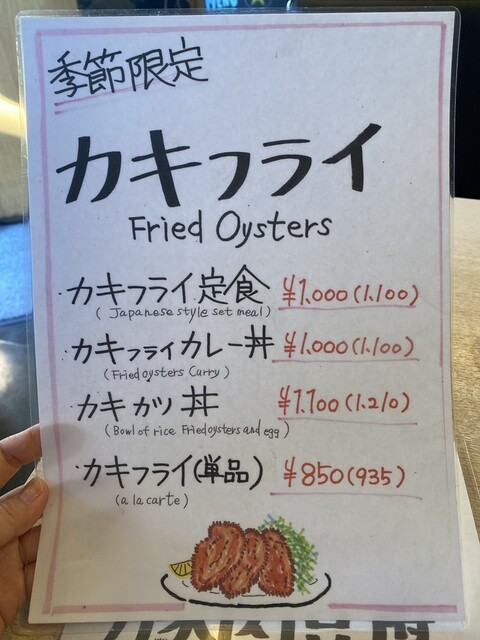 季節限定
カキフライ
Fried Oysters
カキフライ定食 ¥1.000(1.100)
(Japanese style set meal)
カキフライカレー丼 ¥1.000(1.100)
(Fried oysters Curry)
カキカツ丼 ¥1.100(1.210)
(Bowl of rice Fried oysters and egg)
カキフライ(単品) ¥850(935)
(a la carte)